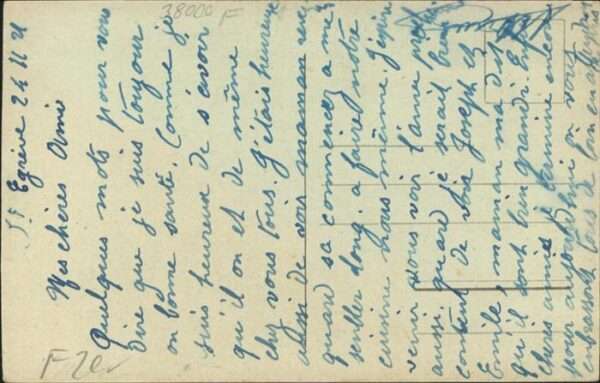 St Egrève 24.11.21
Mes chères Amie
Quelques mots pour vous
dire que je suis toujour
en bône santé. Comme je
suis heureuse de s'avoir
qu'il on et de même
chez vous tous. J'étais heureuse
aussi de voir maman
quand sa commencez a me
seiller donq. a faire notre
cuisine nous même. J'éspère
venir vous voir l'anné
aussi quand je serait
contente de voir Joseph et
Emile, maman ma dit
qu'il sont bien grandi.
chères amies je termine
pour aujourd'hui en vous
embrassant tous de loin en attendant
38000 F
F 20